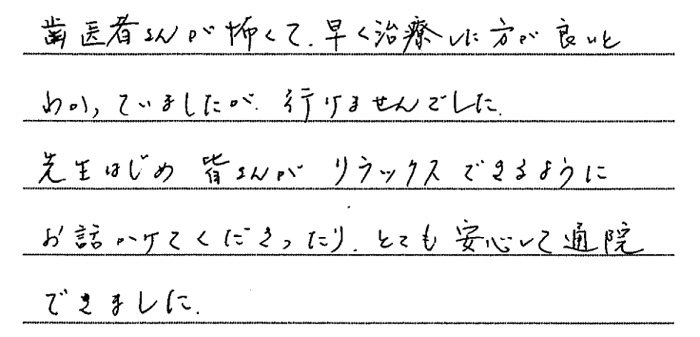 歯医者さんが怖くて、早く治療した方が良いと
わかっていましたが、行けませんでした。
先生はじめ皆さんがリラックスできるように
お話かけてくださったり、とても安心して通院
できました。